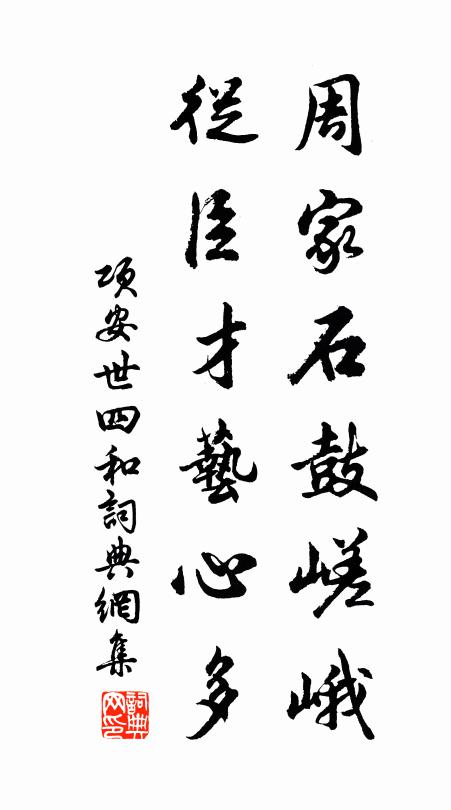 周家石鼓嵯峨
從臣才藝心多
項安世四和詞典網集
詞典網印